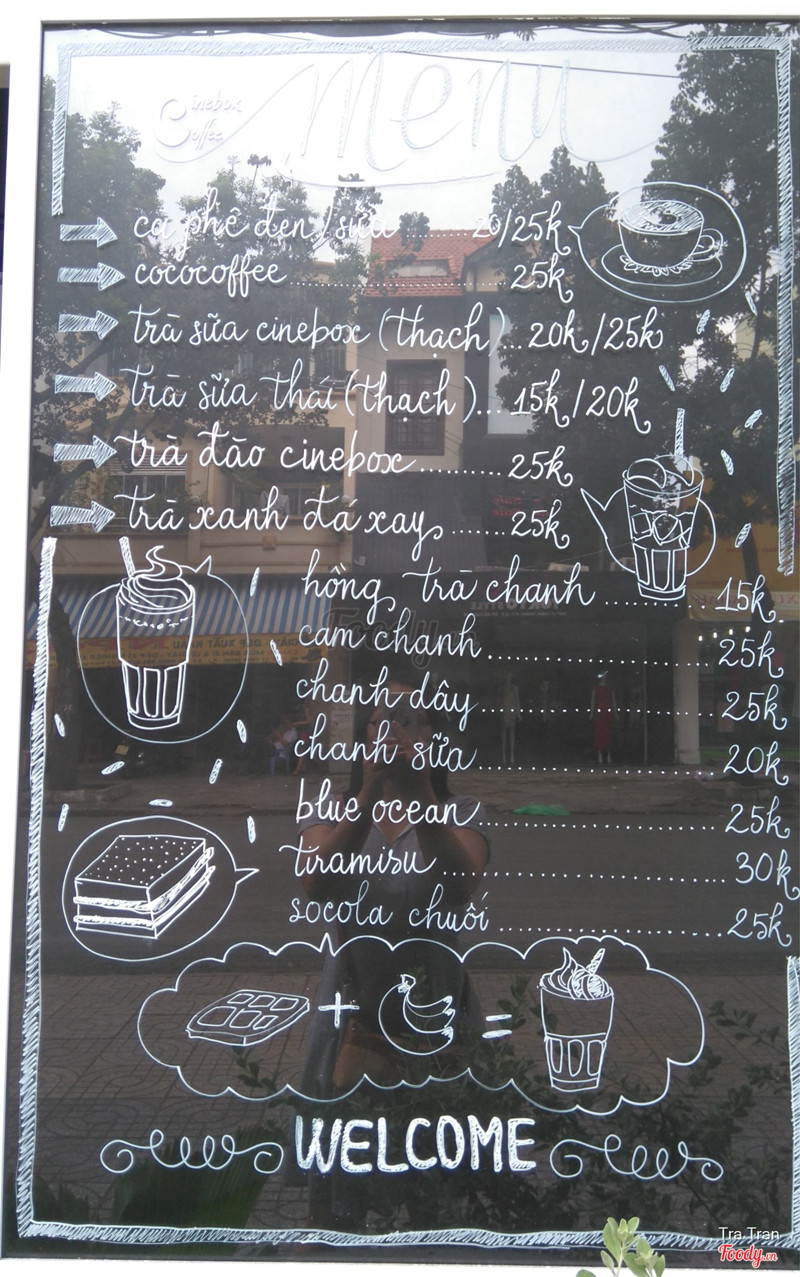 Cinebox
Coffee
Menu
cà phê đen/sữa ...... 20/25k
cococoffee ........................ 25k
trà sữa cinebox (thạch)... 20k/25k
trà sữa thái (thạch)... 15k/20k
trà đào cinebox .......... 25k
trà xanh đá xay ....... 25k
hồng trà chanh ........ 15k
cam chanh ........................ 25k
chanh dây ........................ 25k
chanh sữa ........................ 20k
blue ocean ........................ 25k
tiramisu ........................ 30k
socola chuối ........................ 25k
+ =
WELCOME
Foody.vn
Tra Tran
Foody.vn